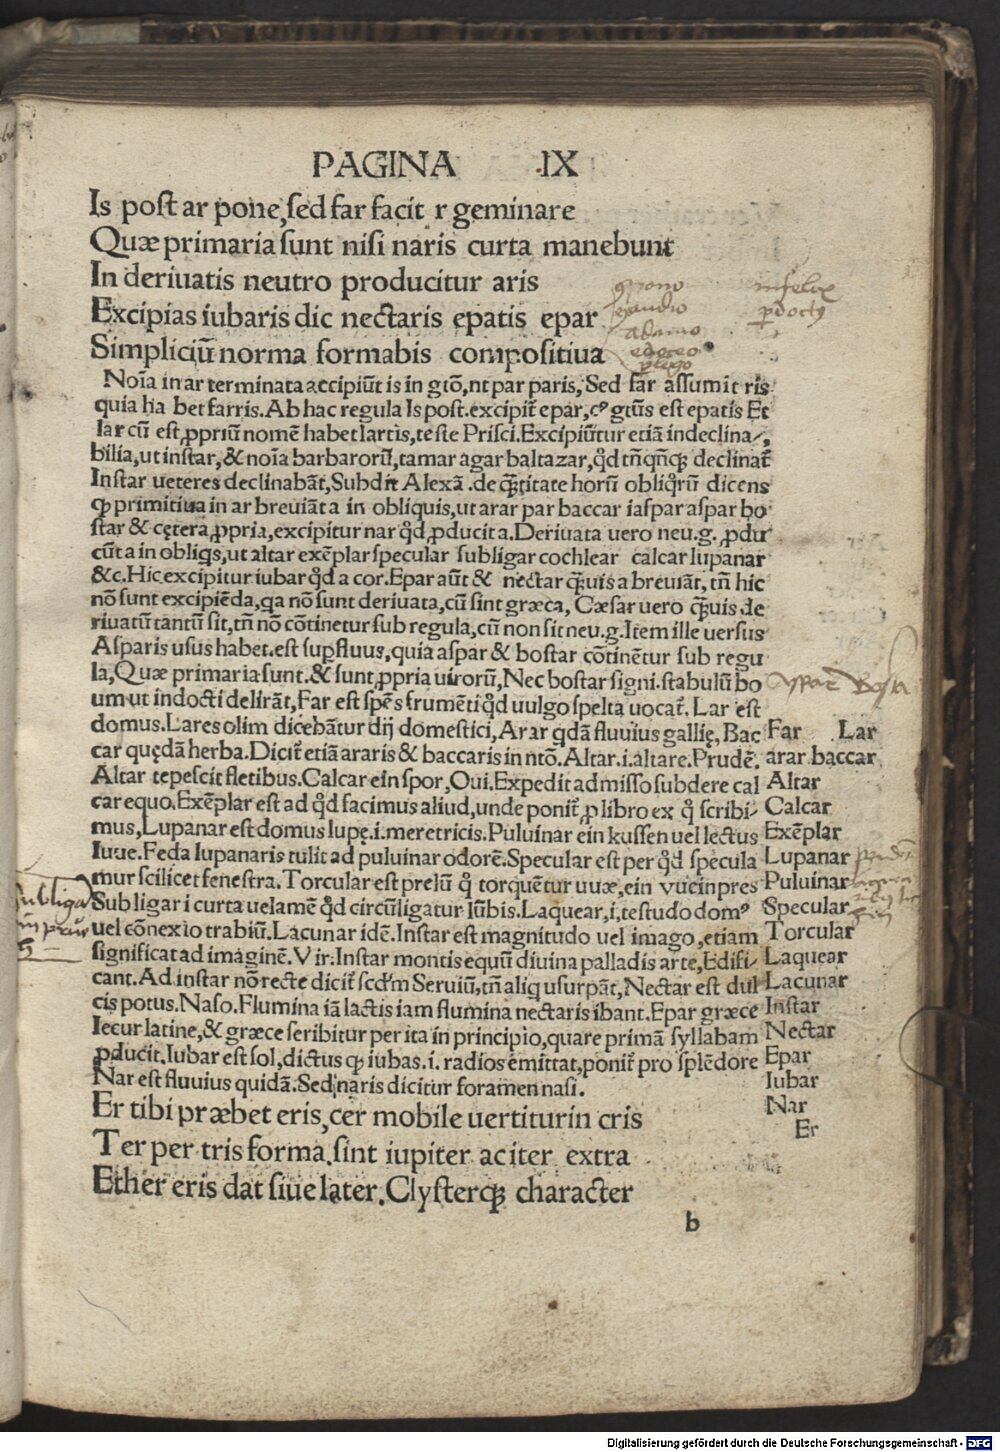 PAGINA IX
Is post ar pone, sed far facit r geminare
Quæ primaria sunt nisi naris curta manebunt
In deriuatis neutro producitur aris
Excipias iubaris dic nectaris epatis epar
Simpliciū norma formabis compositiua
Noīa in ar terminata accipiūt is in gtō, nt par paris, Sed far assumit ris
quia ha bet farris. Ab hac regula Is post. excipit̄ epar, cꝰ gtūs est epatis Et
lar cū est ꝓpriū nomē habet lartis, teste Prisci. Excipiūtur etiā indeclina⸗,
bilia, ut instar, & noīa barbarorū, tamar agar baltazar, qd̄ tn̄ qn̄qꝫ declinat̄
Instar ueteres declinabāt, Subdit Alexā. de quātitate horū obliq̄rū dicens
ꝙ primitiua in ar breuiāt a in obliquis, ut arar par baccar iaspar aspar bo
star & cętera ꝓpria, excipitur nar qd̄ ꝓducit a. Deriuata uero neu. g. ꝓdu
cūt a in obliqs, ut altar exēplar specular subligar cochlear calcar lupanar
&c. Hic excipitur iubar qd̄ a cor. Epar aūt & nectar q̄uis a breuiāt, tn̄ hic
nō sunt excipiēda, qa nō sunt deriuata, cū sint græca, Cæsar uero q̄uis de
riuatū tantū sit, tn̄ nō cōtinetur sub regula, cū non sit neu. g. Item ille uersus
Asparis usus habet. est supfluus, quia aspar & bostar cōtinētur sub regu
la, Quæ primaria sunt. & sunt ꝓpria uirorū, Nec bostar signi. stabulū bo
um ut indocti delirāt, Far est spēs frumēti qd̄ uulgo spelta uocat̄. Lar est
domus. Lares olim dicebātur dij domestici, Arar qdā fluuius gallię, Bac
car quędā herba. Dicit̄ etiā araris & baccaris in ntō. Altar. i. altare. Prudē.
Altar tepescit fletibus. Calcar ein spor, Oui. Expedit admisso subdere cal
car equo. Exēplar est ad qd̄ facimus aliud, unde ponit̄ ꝓ libro ex q̄ scribi⸗
mus, Lupanar est domus lupę. i. meretricis. Puluinar ein kussen uel lectus
Iuue. Feda lupanaris tulit ad puluinar odorē. Specular est per qd̄ specula
mur scilicet fenestra. Torcular est prelū q̄ torquētur uuæ, ein vucinpres
Sub ligar i curta uelamē qd̄ circūligatur lūbis. Laquear, i, testudo domꝰ
uel cōnexio trabiū. Lacunar idē. Instar est magnitudo uel imago, etiam
significat ad imaginē. Vir. Instar montis equū diuina palladis arte, Edifi⸗
cant. Ad instar nō recte dicit̄ scdm Seruiū, tn̄ aliq usurpāt, Nectar est dul
cis potus. Naso. Flumina iā lactis iam flumina nectaris ibant. Epar græce
Iecur latine, & græce scribitur per ita in principio, quare primā syllabam
ꝓducit. Iubar est sol, dictus ꝙ iubas. i. radios emittat, ponit̄ pro splēdore
Nar est fluuius quidā. Sed naris dicitur foramen nasi.
Er tibi præbet eris, cer mobile uertitur in cris
Ter per tris forma. sint iupiter aciter extra
Ether eris dat siue later. Clysterqꝫ character
b
Far Lar
arar baccar
Altar
Calcar
Exēplar
Lupanar
Puluinar
Specular
Torcular
Laquear
Lacunar
Instar
Nectar
Epar
Iubar
Nar
Er
Digitalisierung gefördert durch die Deutsche Forschungsgemeinschaft - DFG